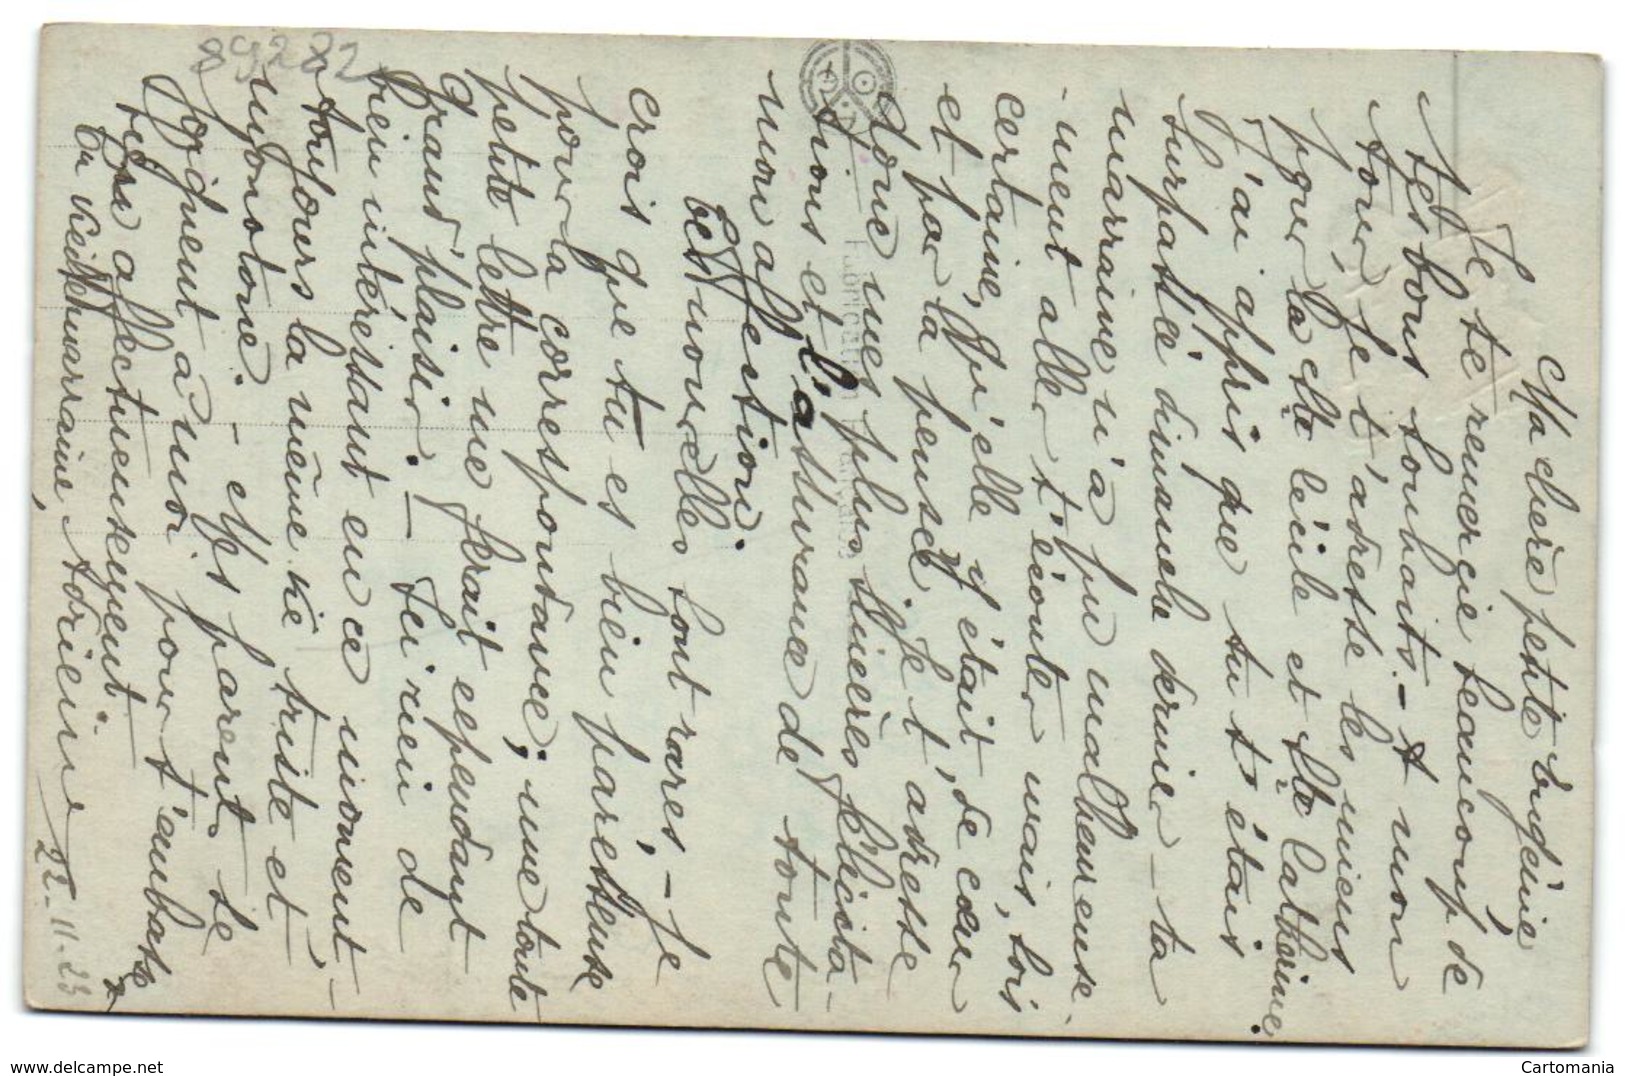 Ma chère petite Eugénie,
Je te remercie beaucoup de
tes bons souhaits. - A mon
tour, je t'adresse les miens
pour la Ste Cécile et Ste Catherine.
J'ai appris que tu t'étais
surpassée dimanche dernier - ta
marraine n'a pu malheureuse-
-ment aller t'écouter mais, sois
certaine, qu'elle y était, de cœur
et par la pensée. Je t'adresse
donc mes plus sincères félicita-
tions et l'assurance de toute
mon affection.
Tes nouvelles sont rares, - je
crois que tu es bien paresseuse
pour la correspondance; une toute
petite lettre me ferait cependant
grand plaisir. - Ici rien de
bien intéressant en ce moment -
toujours la même vie triste et
monotone. - Mes parents se
joignent à moi pour t'embrasser
bien affectueusement.
Ta marraine,
Adrienne
22-11-23
89282
Cartomania